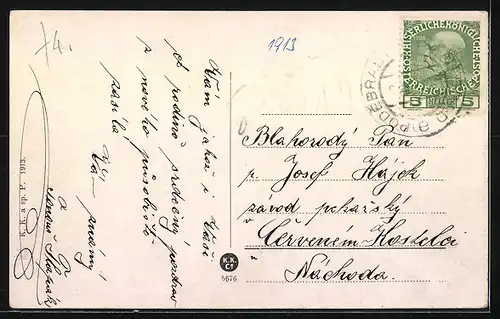 74.
1913
Vám jakož i Vaší
ct. rodině srdečný pozdrav
z nového působiště
zasílá
Váš známý
K. K. a sp. P. 1913.
K.K.
Co
5676
KAISERLICHE KÖNIGLICHE
ÖSTERREICHISCHE
5 HELLER 5
PODĚBRAD
Blahorodý Pan
p. Josef Hájek
závod pekařský
Červeném Kostelci
Náchoda.